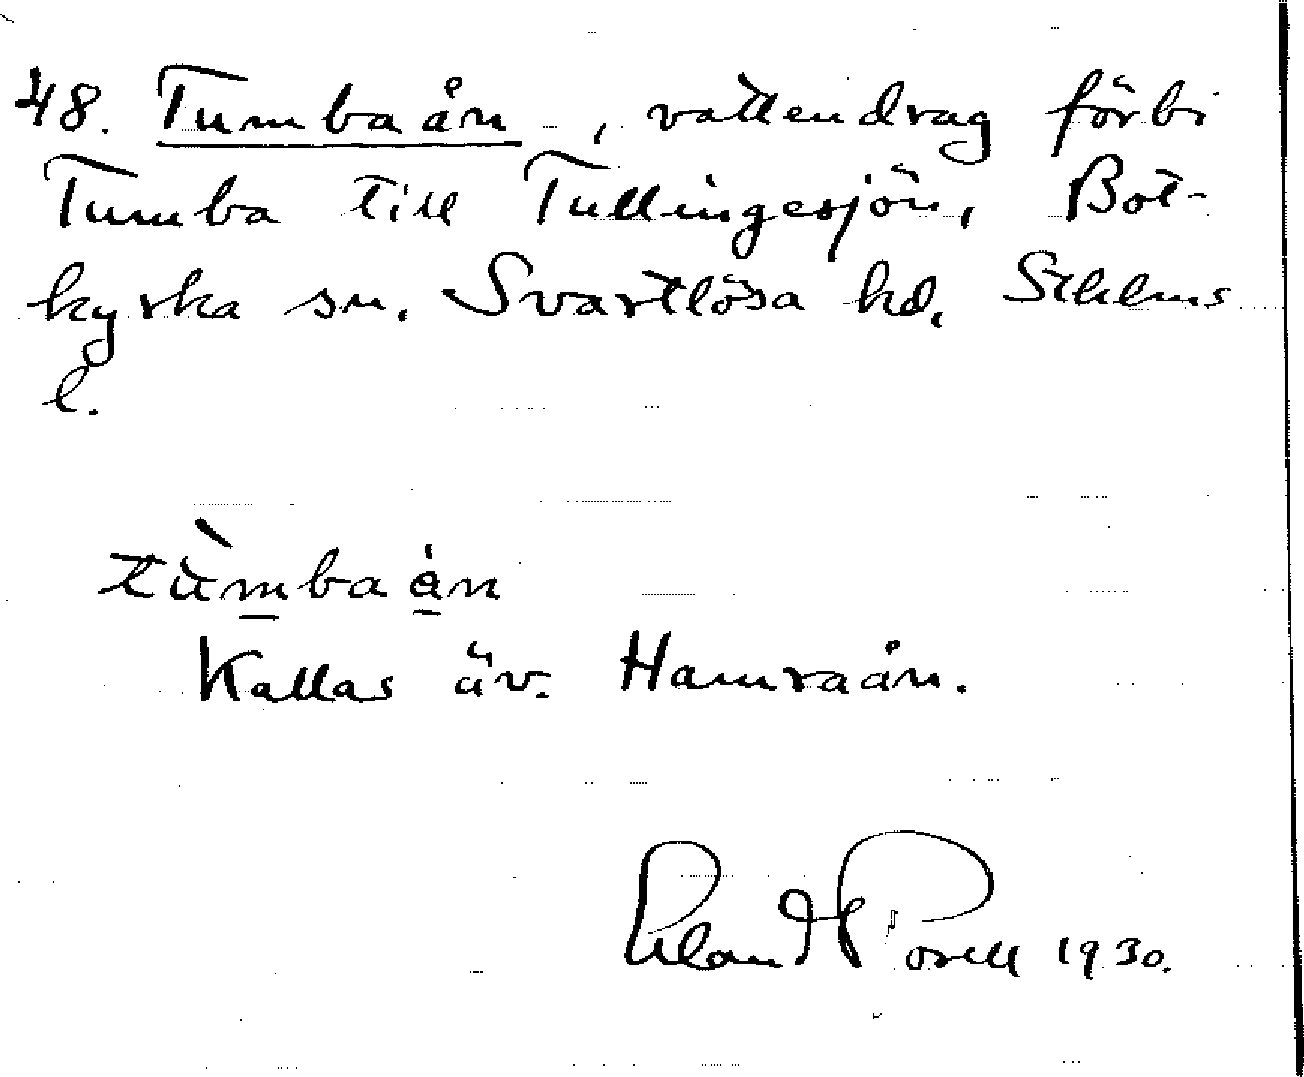 48. Tumbaån, vattendrag förbi
Tumba till Tullingesjön, Bot-
kyrka sn. Svartlösa hd. Sthlms
l.
tùmbaån
Kallas äv. Hamraån.
1930.